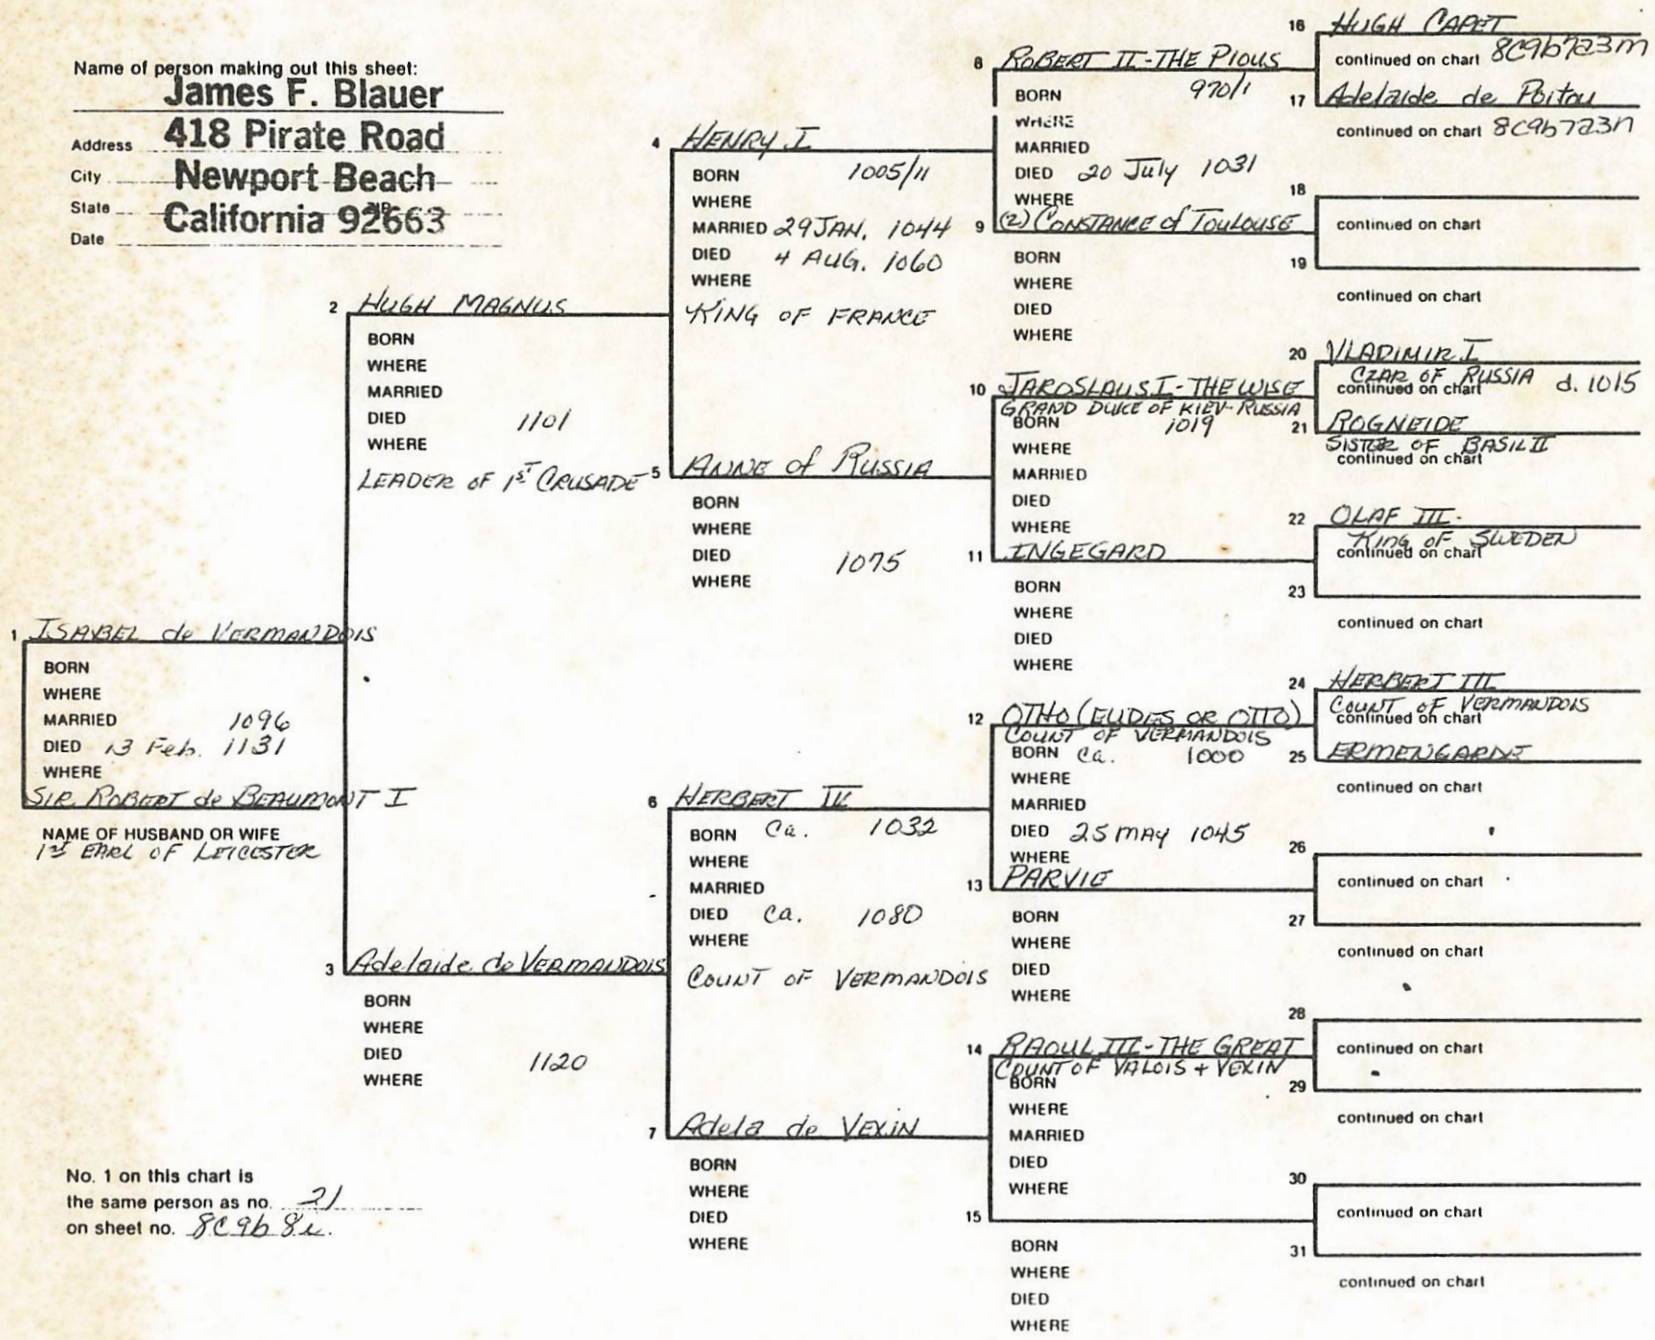 Name of person making out this sheet:
James F. Blauer
Address 418 Pirate Road
City Newport Beach
State California 92663
Date
1 ISABEL de VERMANDOIS
BORN
WHERE
MARRIED 1096
DIED 13 Feb. 1131
WHERE
SIR ROBERT de BEAUMONT I
NAME OF HUSBAND OR WIFE
1ST EARL OF LEICESTER
2 HUGH MAGNUS
BORN
WHERE
MARRIED
DIED 1101
WHERE
LEADER OF 1ST CRUSADE
3 Adelaide de VERMANDOIS
BORN
WHERE
DIED 1120
WHERE
4 HENRY I
BORN 1005/11
WHERE
MARRIED 29 JAN. 1044
DIED 4 AUG. 1060
WHERE
KING OF FRANCE
5 ANNE of RUSSIA
BORN
WHERE
DIED 1075
WHERE
6 HERBERT IV
BORN Ca. 1032
WHERE
MARRIED
DIED Ca. 1080
WHERE
COUNT OF VERMANDOIS
7 Adela de VEXIN
BORN
WHERE
DIED
WHERE
8 ROBERT II-THE PIOUS
BORN 970/1
WHERE
MARRIED
DIED 20 July 1031
WHERE
9 (2) CONSTANCE of TOULOUSE
BORN
WHERE
DIED
WHERE
10 JAROSLAUS I-THE WISE
GRAND DUKE OF KIEV-RUSSIA
BORN 1019
WHERE
MARRIED
DIED
WHERE
11 INGEGARD
BORN
WHERE
DIED
WHERE
12 OTHO (EUDES OR OTTO)
COUNT OF VERMANDOIS
BORN Ca. 1000
WHERE
MARRIED
DIED 25 MAY 1045
WHERE
13 PARVIE
BORN
WHERE
DIED
WHERE
14 RAOUL III-THE GREAT
COUNT OF VALOIS + VEXIN
BORN
WHERE
MARRIED
DIED
WHERE
15
BORN
WHERE
DIED
WHERE
16 HUGH CAPET
continued on chart 8C9b7a3m
17 Adelaide de Poitou
continued on chart 8C9b7a3n
18
continued on chart
19
continued on chart
20 VLADIMIR I
CZAR OF RUSSIA d. 1015
continued on chart
21 ROGNEIDE
SISTER OF BASIL II
continued on chart
22 OLAF III-
KING OF SWEDEN
continued on chart
23
continued on chart
24 HERBERT III
COUNT OF VERMANDOIS
continued on chart
25 ERMENGARDE
continued on chart
26
continued on chart
27
continued on chart
28
continued on chart
29
continued on chart
30
continued on chart
31
continued on chart
No. 1 on this chart is
the same person as no. 21
on sheet no.